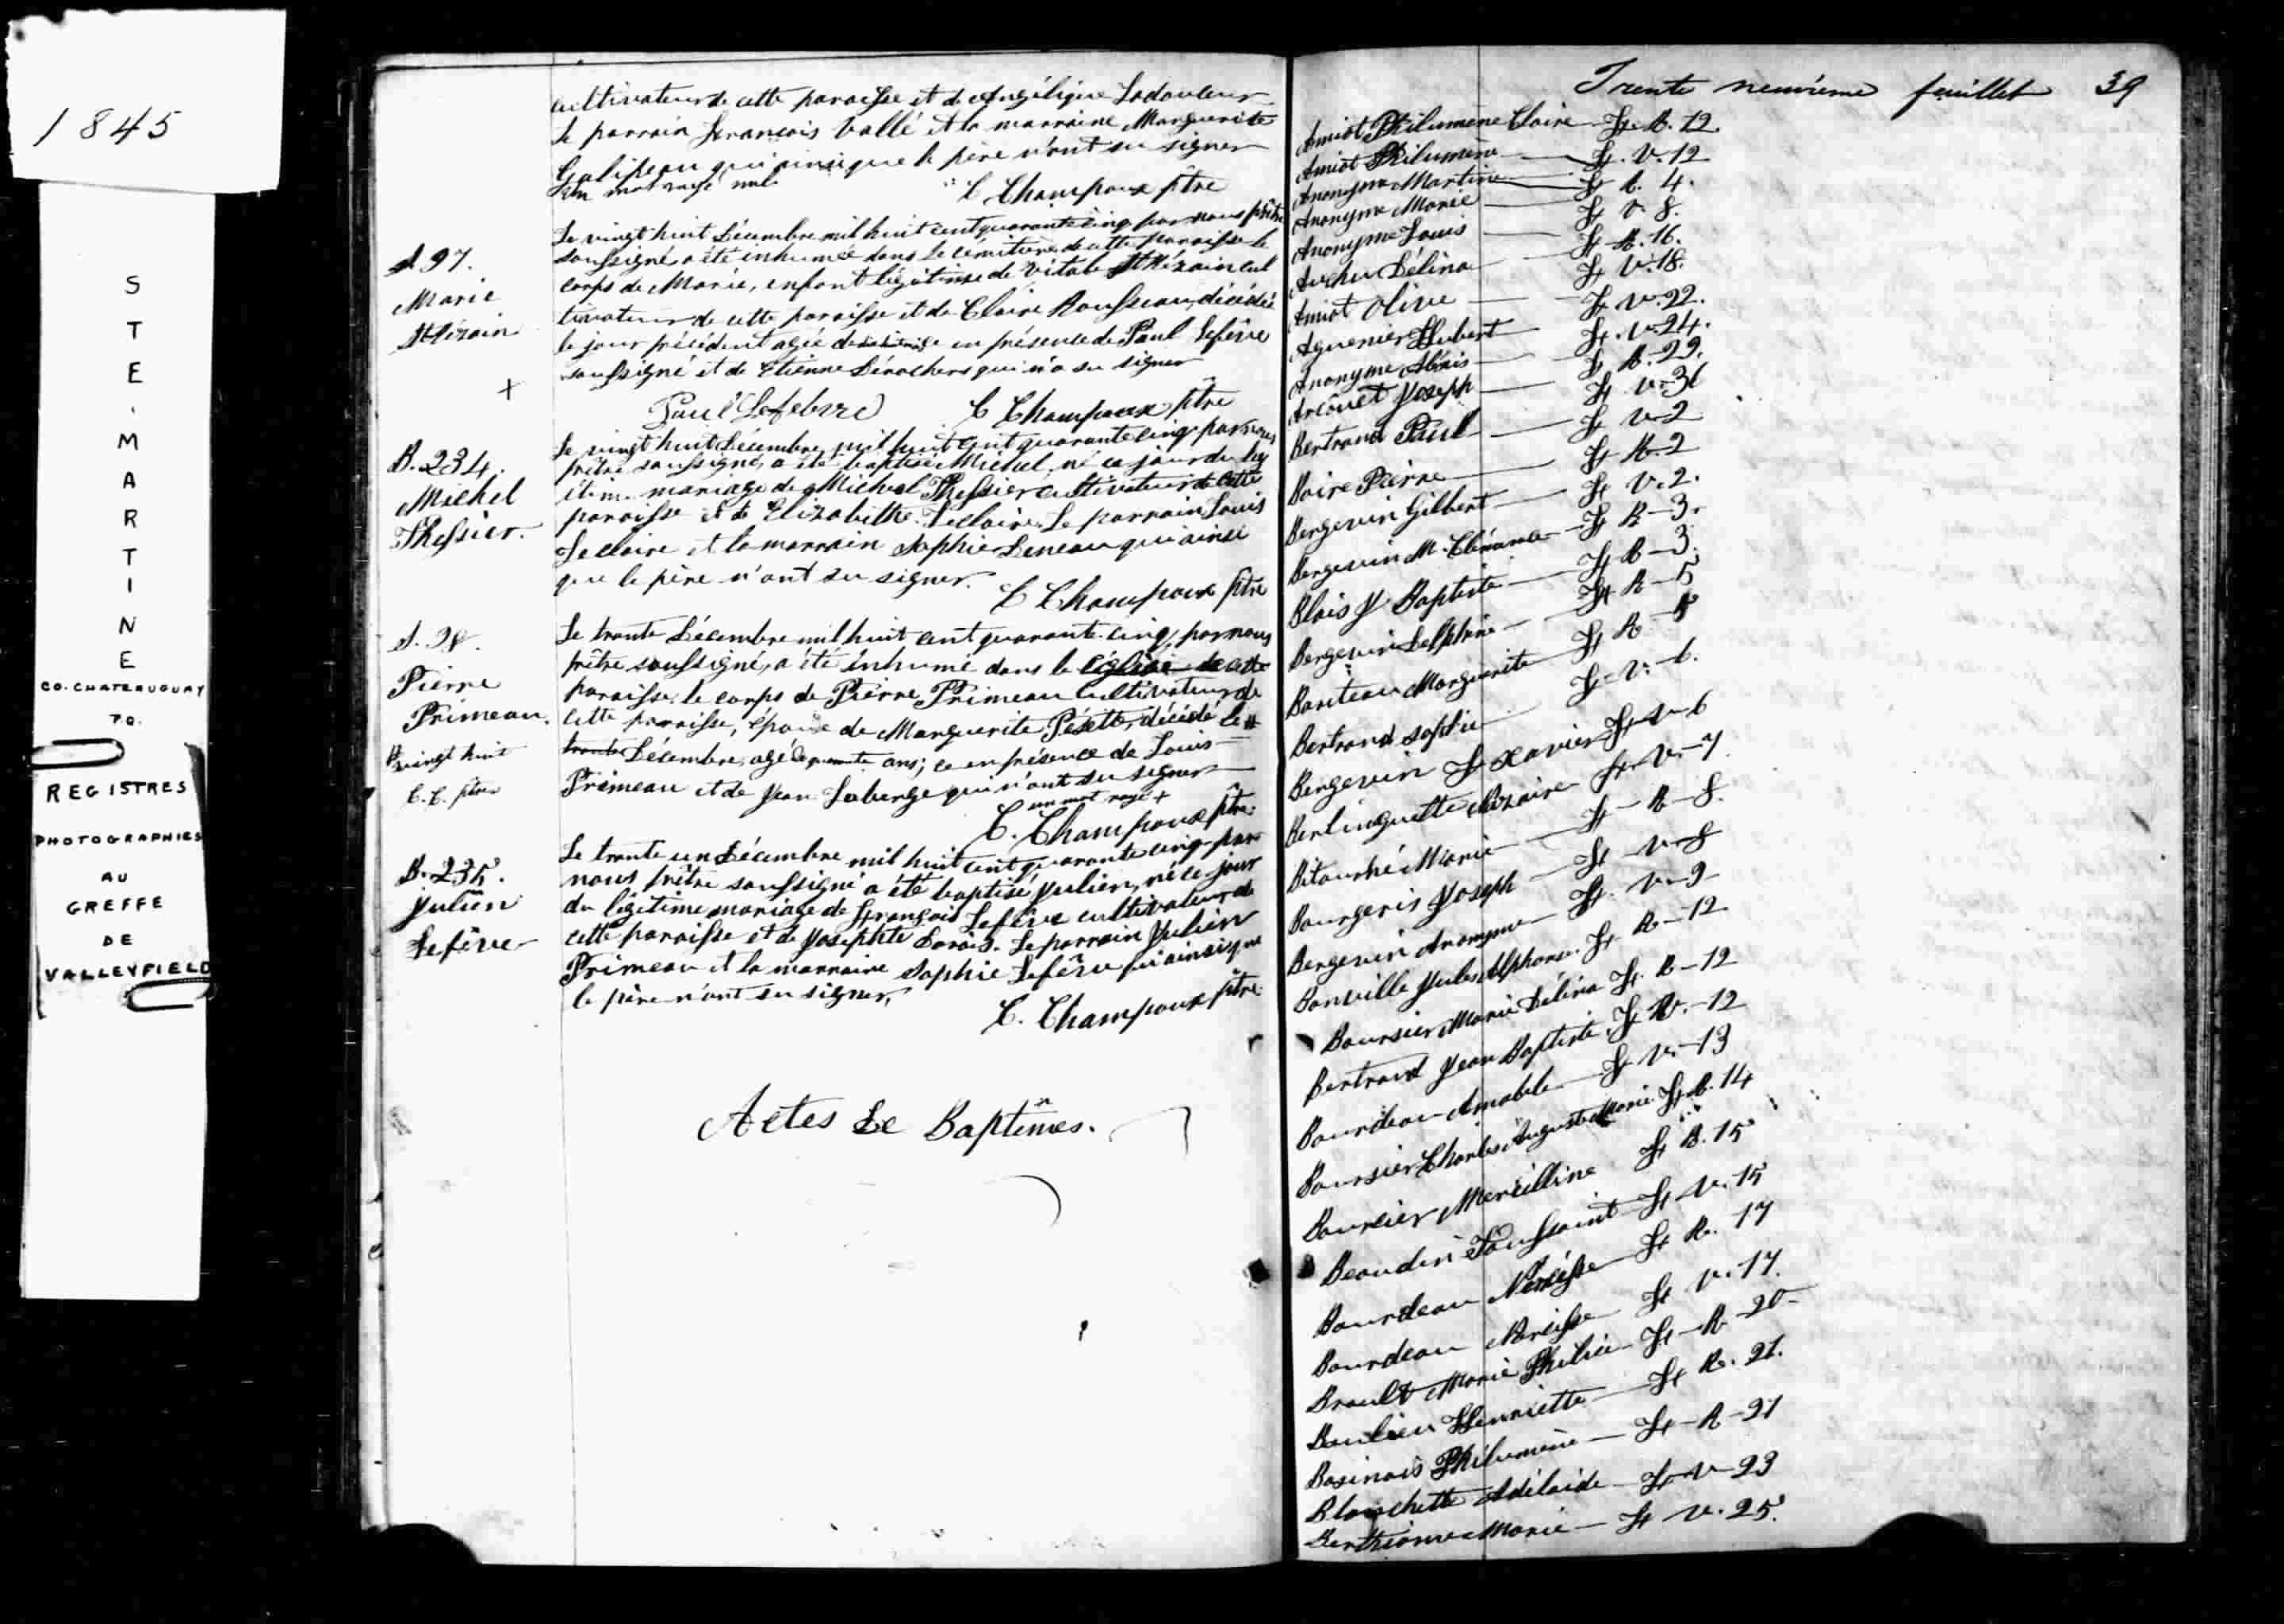 1845
STE. MARTINE
CO. CHATEAUGUAY
P.Q.
REGISTRES
PHOTOGRAPHIES
AU
GREFFE
DE
VALLEYFIELD
cultivateur de cette paroisse et de Angélique Ladouceur
Le parrain Francois Vallé et la marraine Marguerite
Galipeau qui ainsi que le père n'ont su signer
Un mot rayé nul
C Champoux ptre
S. 97.
Marie
Le vingt huit Décembre mil huit cent quarante cinq par nous prêtre
soussigné a été inhumée dans le cémitière de cette paroisse le
corps de Marie, enfant légitime de Vital cul
tivateur de cette paroisse et de Claire Rousseau, décédée
le jour précédent agée de en présence de Paul Lefêvre
soussigné et de Etienne Dérochers qui n'a su signer
Paul Lefebvre C Champoux ptre
B. 234.
Michel
Thessier.
Le vingt huit Décembre mil huit cent quarante cinq par nous
prêtre soussigné, a été baptisé Michel, né ce jour du lég
itime mariage de Michel Thessier cultivateur de cette
paroisse et de Elizabethe Leclaire. Le parrain Louis
Leclaire et la marraine Sophie Deneau qui ainsi
que le père n'ont su signer.
C Champoux ptre
S. 98.
Pierre
Primeau.
# vingt huit
C. C. ptre
Le trente Décembre mil huit cent quarante-cinq, par nous
prêtre soussigné, a été inhumé dans le église de cette
paroisse, le corps de Pierre Primeau Cultivateur de
cette paroisse, époux de Marguerite décédé le #
trente Décembre, agé de ans; ce en présence de Louis
Primeau et de Jean Laberge qui n'ont su signer
un mot rayé +
C. Champoux ptre.
B. 235.
Julien
Lefêvre
Le trente un Décembre mil huit cent quarante cinq par
nous prêtre soussigné a été baptisé Julien, né ce jour
du légitime mariage de François Lefêvre cultivateur de
cette paroisse et de Josephte Le parrain Julien
Primeau et la marraine Sophie Lefêvre qui ainsi que
le père n'ont su signer,
C. Champoux ptre
Actes De Baptêmes.
Trente neuvième feuillet 39
Amiot Philumène Claire — Ft. R. 12.
Amiot Philumène — Ft. V. 12
Anonyme Martine — Ft R. 4.
Anonyme Marie — Ft V 8.
Anonyme Louis — Ft R. 16.
Archer Délina — Ft V. 18.
Amiot Olive — Ft V. 22.
Hubert — Ft. V. 24.
Anonyme — Ft R. 29.
Joseph — Ft V. 36
Bertrand Paul — Ft V 2
Boire Pierre — Ft R. 2
Bergevin Gilbert — Ft V. 2.
Bergevin M. — Ft R — 3.
Blais J Baptiste — Ft R — 3.
Bergevin Delphine — Ft R — 5
Marguerite — Ft R — 5
Bertrand Sophie — Ft — V. — 6.
Bergevin F Xavier Ft V — 6
Berlinguette Ft. V. — 7
Marie — Ft — R — 8.
Joseph — Ft V — 8
Bergevin Anonyme — Ft. V. — 9
Jules Alphonse. Ft. R — 12
Boursier Marie Délina Ft. R — 12
Bertrand Jean Baptiste Ft V. — 12
Bourdeau Amable — Ft V. — 13
Boursier Charles Auguste Marie Ft R. 14
Ft R. 15
Beaudin Toussaint — Ft V. 15
Bourdeau Narcisse — Ft R. 17
Bourdeau Narcisse Ft V. 17.
Brault Marie — Ft — R — 20
Henriette — Ft R. 21.
Philumène — Ft — R — 21
Blanchette Adélaïde — Ft V — 23
Marie — Ft V. 25.